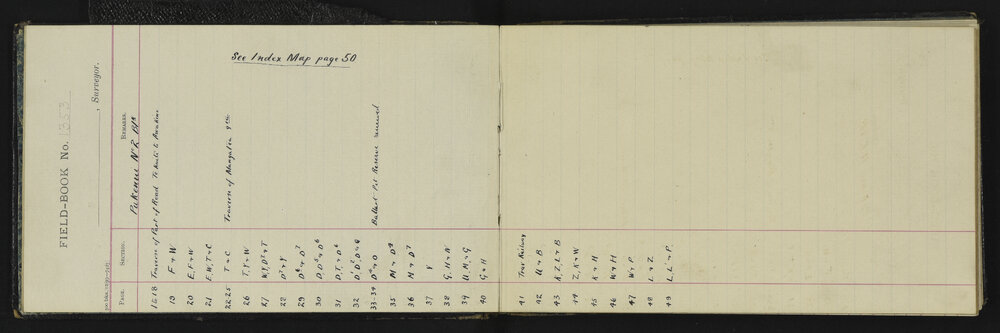 FIELD-BOOK No. 1353
, Surveyor.
PAGE. SECTION. REMARKS.
Pukenui No 2 Blk
See Index Map page 50
16-18 Traverse of Part of Road Te Kuiti to Awakino
19 F & W
20 E, F & W
21 E, W, T & C
22-25 T & C Traverse of Mangatea
26 T, Y & W
27 W, Y, D² & T
28 D² & Y
29 D⁶ & D⁷
30 D, D⁵ & D⁶
31 D, T, & D⁶
32
33-34 Ballast Pit Reserve renewed
35
36 M & D⁷
37 Y
38 G, H & N
39 U, M, & G
40 G & H
41 Trav Railway
42 U & B
43 K, Z, L & B
44 Z, K & W
45 K & H
46 W & H
47 W & P
48 L & Z
49